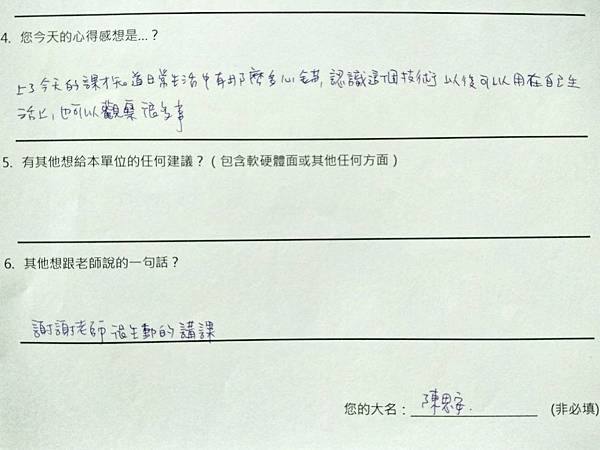 4. 您今天的心得感想是...？
上了今天的課才知道日常生活中有那麼多心錨，認識這個技術了以後可以用在自己生
活上，也可以觀察很多事
5. 有其他想給本單位的任何建議？（包含軟硬體面或其他任何方面）
6. 其他想跟老師說的一句話？
謝謝老師很生動的講課
您的大名：陳思安. (非必填)